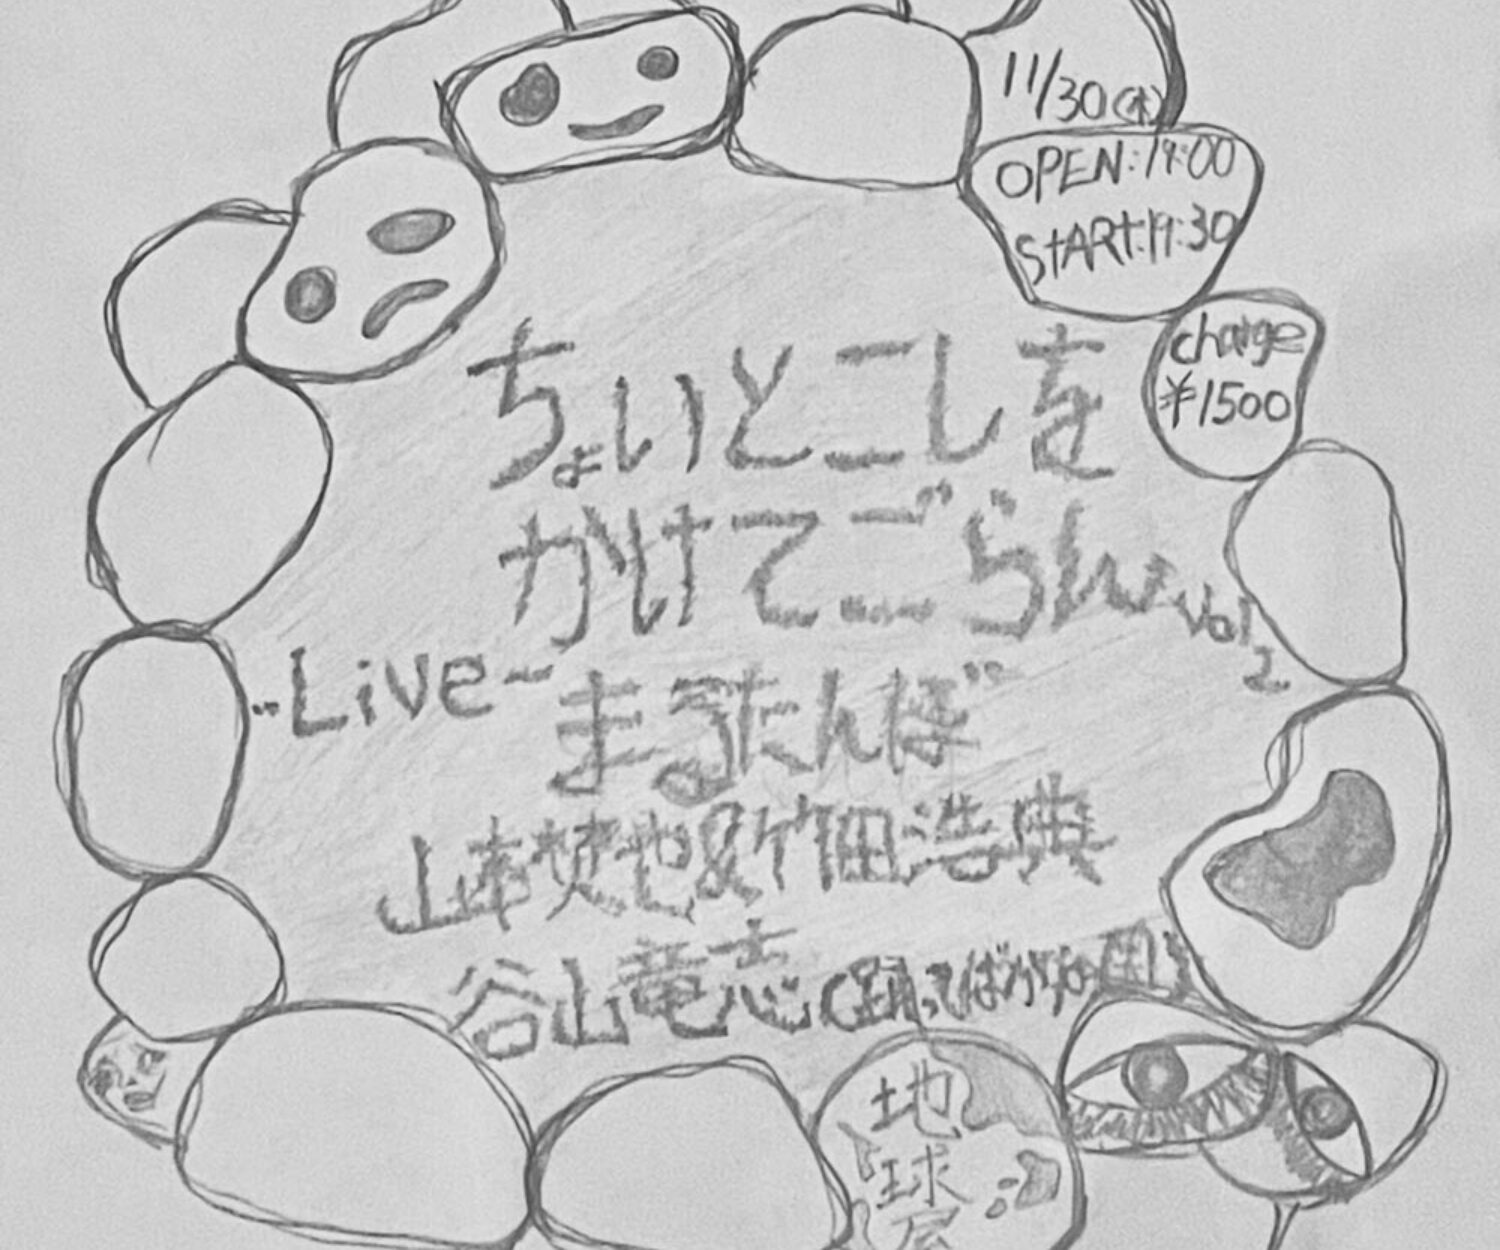 11/30(水)
OPEN:19:00
START:19:30
charge
¥1500
ちょいとこしを
かけてごらん vol
2
-Live-
まるたんぼ
谷山竜志(踊ってばかりの国)
地
球
屋